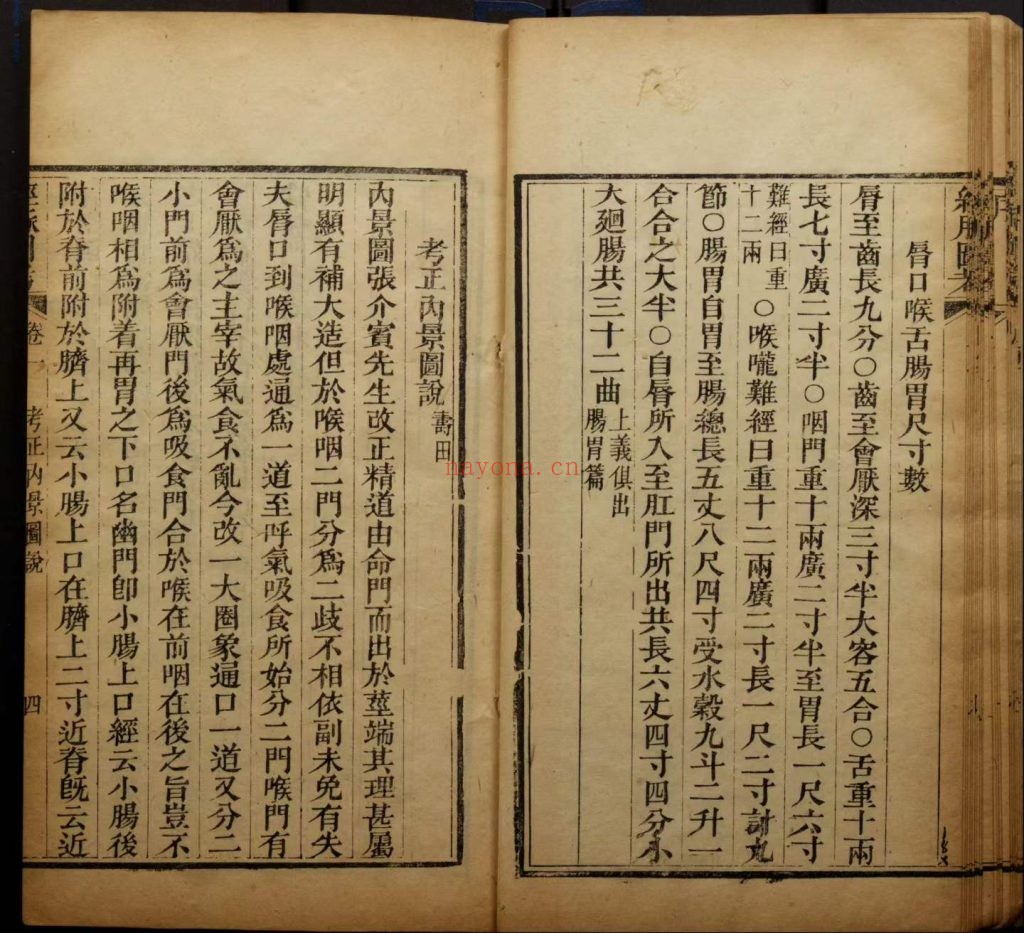 經脈圖考
唇口喉舌腸胃尺寸數
唇至齒長九分〇齒至會厭深三寸半大容五合〇舌重十兩
長七寸廣二寸半〇咽門重十兩廣二寸半至胃長一尺六寸
難經曰重十二兩〇喉嚨難經曰重十二兩廣二寸長一尺二寸計九
節〇腸胃自胃至腸總長五丈八尺四寸受水穀九斗二升一
合合之大半〇自唇所入至肛門所出共長六丈四寸四分小
大廻腸共三十二曲上義俱出腸胃篇
考正內景圖說 壽田
內景圖張介賓先生改正精道由命門而出於莖端其理甚屬
明顯有補大造但於喉咽二門分為二歧不相依副未免有失
夫唇口到喉咽處通為一道至呼氣吸食所始分二門喉門有
會厭為之主宰故氣食不亂今改一大圈象通口一道又分二
小門前為會厭門後為吸食門合於喉在前咽在後之旨豈不
喉咽相為附着再胃之下口名幽門卽小腸上口經云小腸後
附於脊前附於臍上又云小腸上口在臍上二寸近脊旣云近
經脈圖考 卷一 考正內景圖說 四
nayona.cn